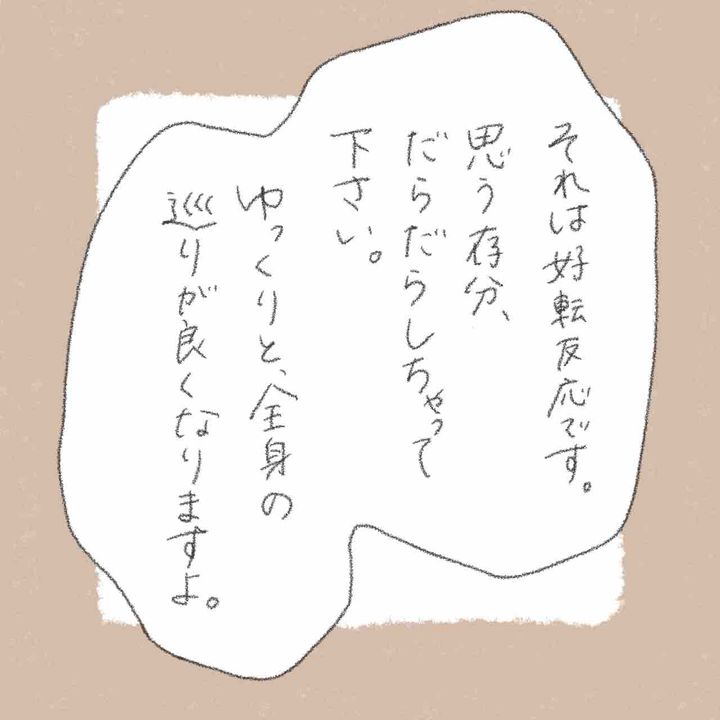 それは好転反応です。
思う存分、
だらだらしちゃって
下さい。
ゆっくりと、全身の
巡りが良くなりますよ。